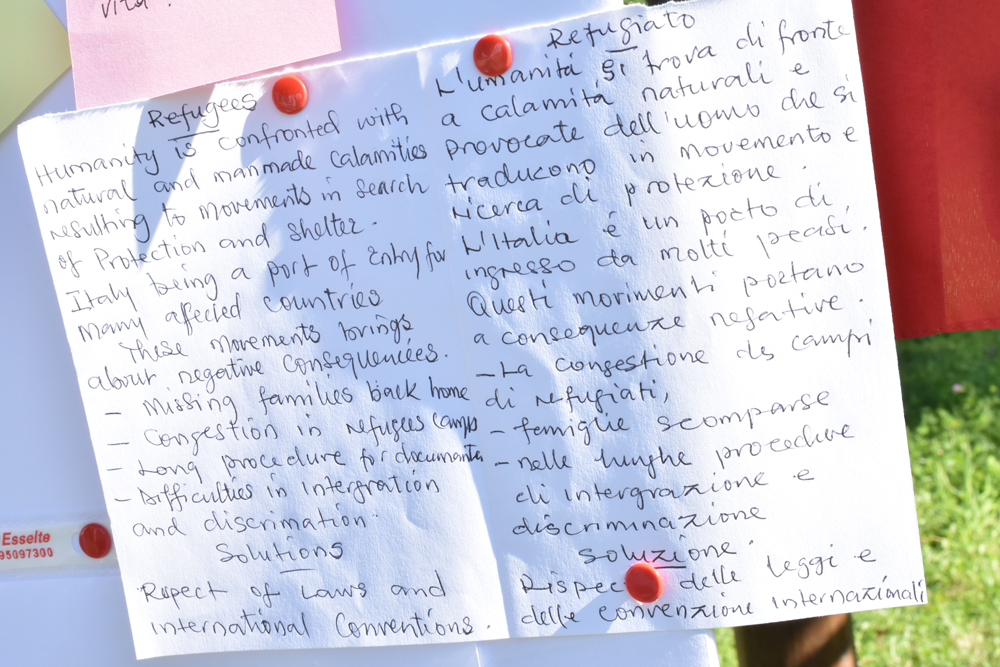 vita!
Refugees
Humanity is confronted with
natural and manmade calamities
resulting to movements in search
of Protection and shelter.
Italy being a port of Entry for
many affected countries
These movements brings
about negative consequencies.
- Missing families back home
- Congestion in refugees camps
- Long procedure for documents
- Difficulties in intergration
and discrimation.
Solutions
Repect of Laws and
International Conventions.
Refugiato
L'umanitá si trova di fronte
a calamitá naturali e
provocate dell'uomo che si
traducono in movemento e
ricerca di protezione.
L'Italia é un porto di
ingresso da molti peasi.
Questi morimenti portano
a consequenze negative.
- La congestione des campi
di refugiati,
- femiglie scomparse
- nelle lunghe procedure
di intergrazione e
discriminazione
soluzione.
Rispec delle leggi e
delle convenzione internazionali
Esselte
95097300